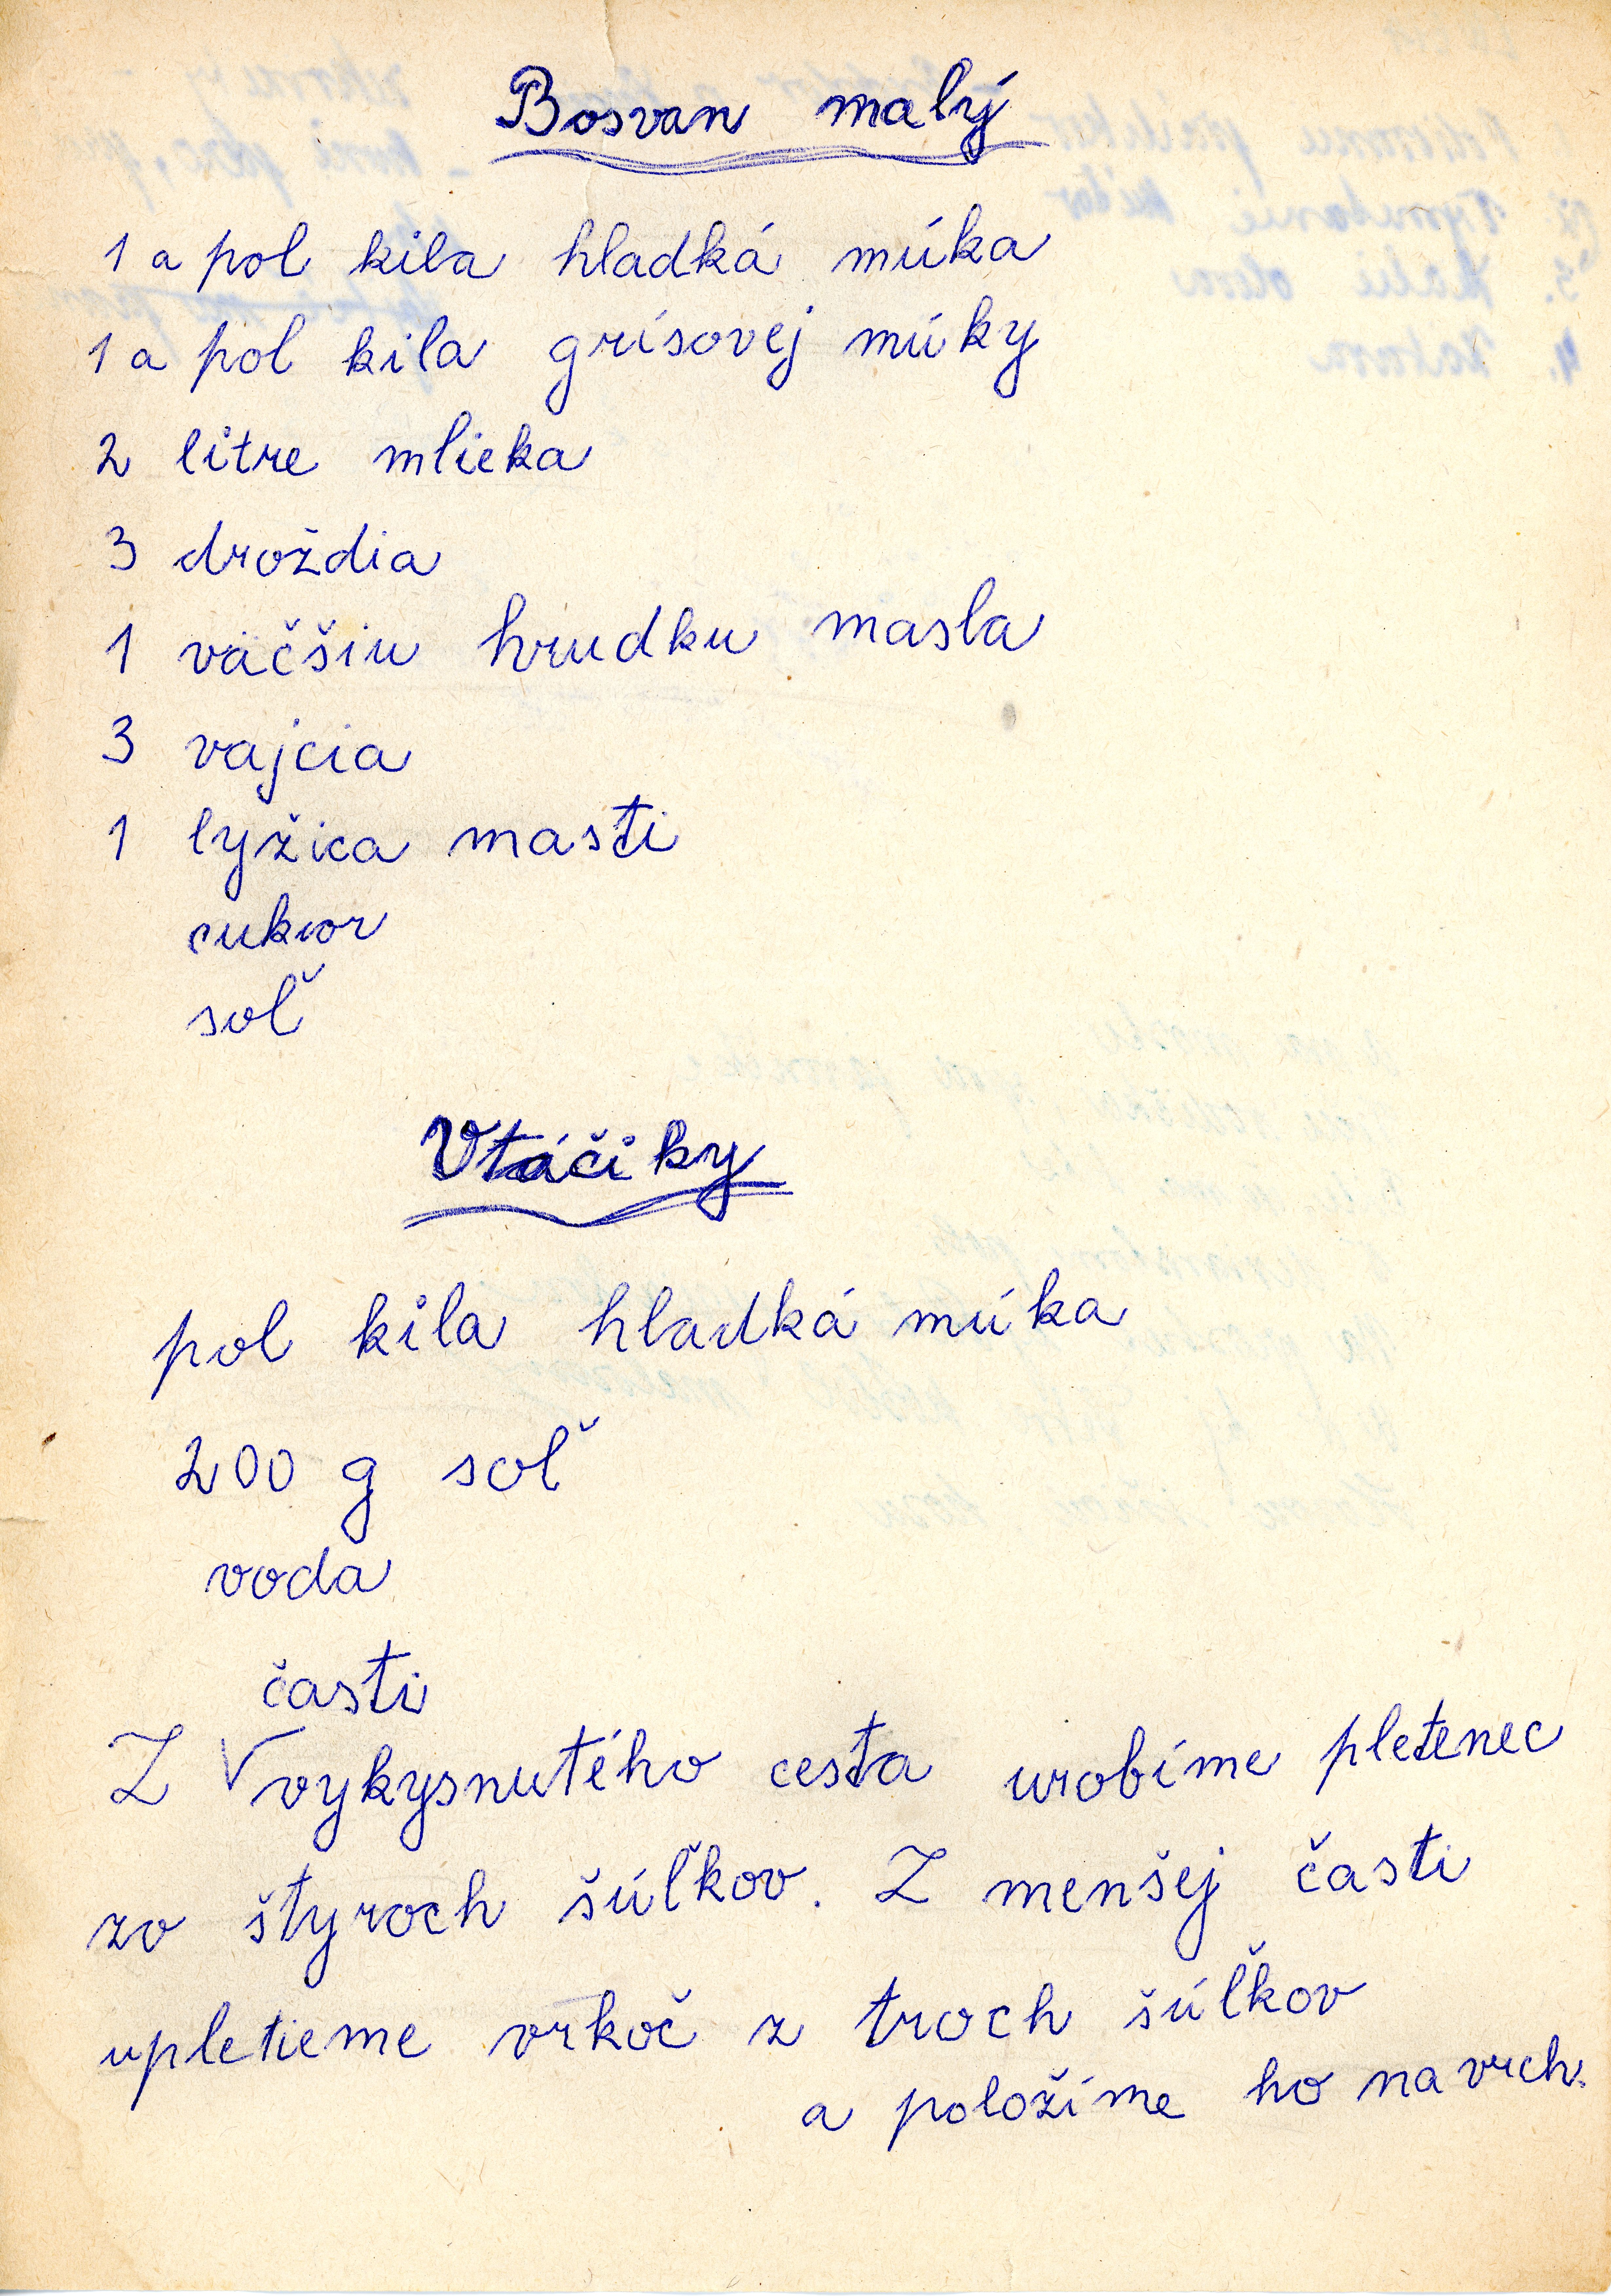 Bosvan malý
1 a pol kila hladká múka
1 a pol kila grísovej múky
2 litre mlieka
3 droždia
1 väčšiu hrudku masla
3 vajcia
1 lyžica masti
cukor
soľ
Vtáčiky
pol kila hladká múka
200 g soľ
voda
časti
Z vykysnutého cesta urobíme pletenec
zo štyroch šúľkov. Z menšej časti
upletieme vrkoč z troch šúľkov
a položíme ho na vrch.